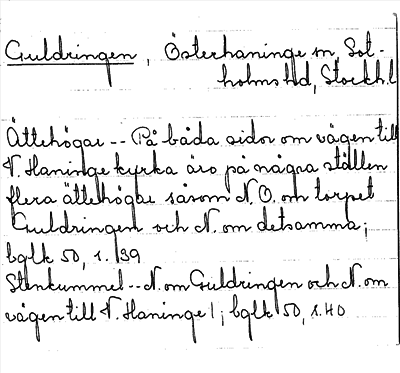 Guldringen, Österhaninge sn, Sot-
holms hd, Stockh.l
Ättehögar -- På båda sidor om vägen till
V. Haninge kyrka äro på några ställen
flera ättehögar såsom N.O. om torpet
Guldringen och N. om detsamma;
bglk 50, s. 39
Stenkummel -- N. om Guldringen och N. om
vägen till V. Haninge!; bglk 50, s. 40